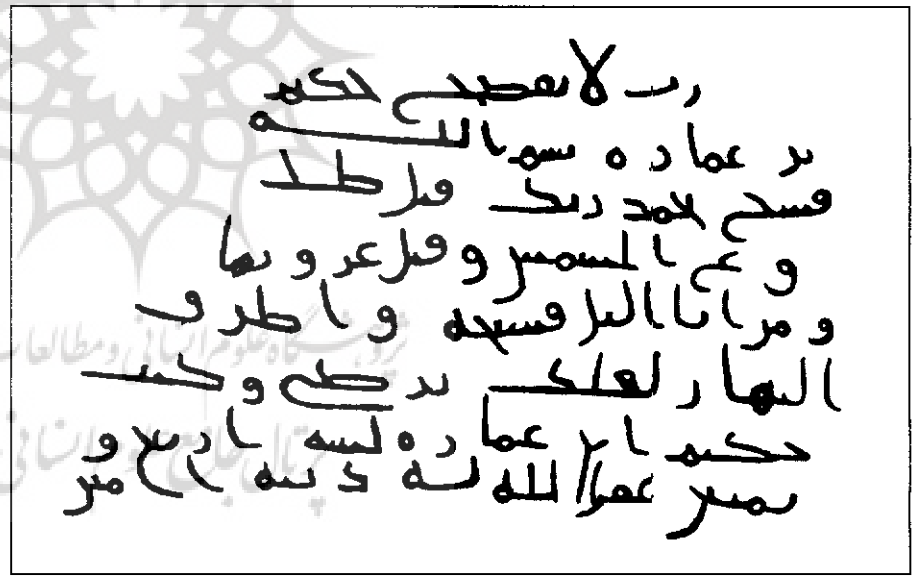 رب لا تفضح حكيم
بن عمارة بسم الله
فسبح بحمد ربك قبل طل
وع الشمس وقبل غروبها
ومن انا اليل فسبحه واطرف
النهار لعلك ترضى وكتب
حكيم ابن عمارة لسنة اربع و
ثمنين غفر الله له ذنبه امين
پژوهشگاه علوم انسانی و مطالعات
پرتال جامع علوم انسانی